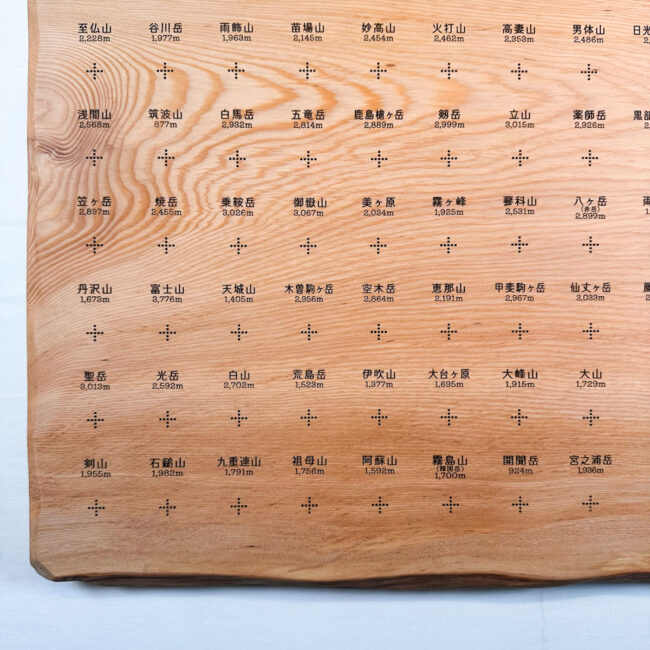 至仏山 谷川岳 雨飾山 苗場山 妙高山 火打山 高妻山 男体山 日光
2,228m 1,977m 1,963m 2,145m 2,454m 2,462m 2,353m 2,486m
浅間山 筑波山 白馬岳 五竜岳 鹿島槍ヶ岳 剱岳 立山 薬師岳 黒部
2,568m 877m 2,932m 2,814m 2,889m 2,999m 3,015m 2,926m
笠ヶ岳 焼岳 乗鞍岳 御嶽山 美ヶ原 霧ヶ峰 蓼科山 八ヶ岳
(赤岳)
2,897m 2,455m 3,026m 3,067m 2,034m 1,925m 2,531m 2,899m
丹沢山 富士山 天城山 木曽駒ヶ岳 空木岳 恵那山 甲斐駒ヶ岳 仙丈ヶ岳
1,673m 3,776m 1,405m 2,956m 2,864m 2,191m 2,967m 3,033m
聖岳 光岳 白山 荒島岳 伊吹山 大台ヶ原 大峰山 大山
3,013m 2,592m 2,702m 1,523m 1,377m 1,695m 1,915m 1,729m
剣山 石鎚山 九重連山 祖母山 阿蘇山 霧島山 開聞岳 宮之浦岳
(韓国岳)
1,955m 1,982m 1,791m 1,756m 1,592m 1,700m 924m 1,936m